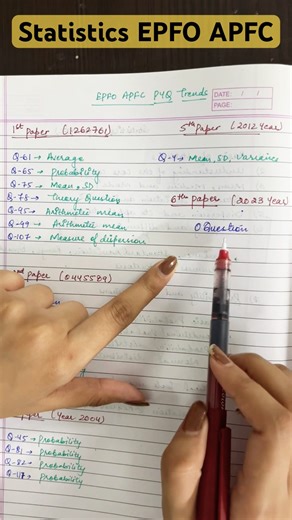 Statistics EPFO APFC
EPFO APFC PYQ Trends
DATE: / /
PAGE:
1st paper (1262761)
Q-61 → Average
Q-65 → probability
Q-75 → Mean, SD
Q-78 → Theory Question
Q-95 → Arithmetic mean
Q-99 → Arithmetic mean
Q-107 → Measure of dispersion
paper (0445589)
(Year 2004)
Q-45 → probability
Q-81 → probability
Q-82 → probability
Q-117 → probability
5th paper (2012 Year)
Q-4 → Mean, SD, Variance
6th paper (2023 Year)
0 Question